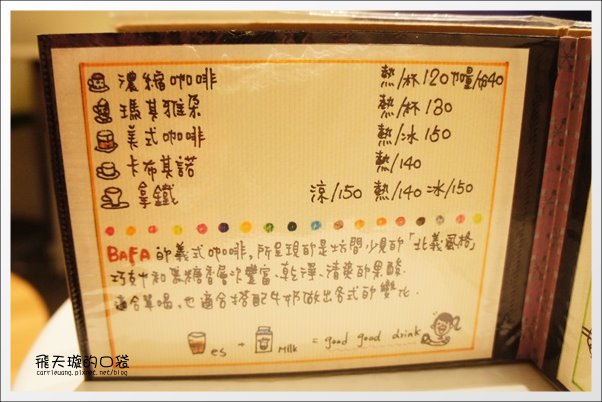 濃縮咖啡 熱/杯 120 加量/份40
瑪其雅朶 熱/杯 130
美式咖啡 熱/冰 150
卡布其諾 熱/140
拿鐵 涼/150 熱/140 冰/150
BAFA 的義式咖啡,所呈現的是坊間少見的「北義風格」
巧克力和焦糖香層次豐富.乾淨、清爽的果酸.
適合單喝,也適合搭配牛奶做出各式的變化.
es + Milk = good good drink
飛天璇的口袋
carrieuang.pixnet.net/blog